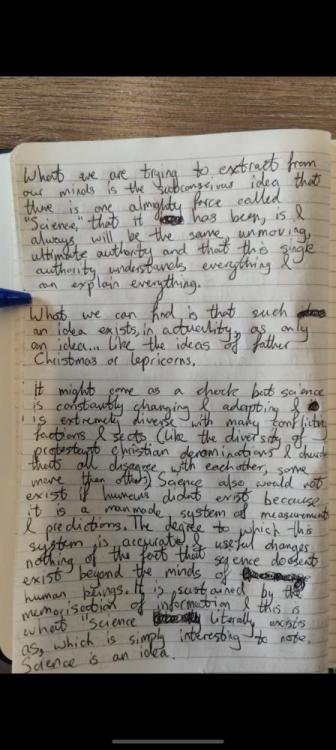 What we are trying to extract from
our minds is the subconscious idea that
there is one almighty force called
"Science," that it has been, is &
always will be the same, unmoving,
ultimate authority and that this single
authority understands everything &
can explain everything.
What we can find is that such
an idea exists, in actuality, as only
an idea... like the ideas of father
Christmas or lepricorns.
it might come as a chock but science
is constantly changing & adapting &
is extremely diverse with many conflicting
factions & sects (like the diversity of
protestant christian denominations &
that all disagree with eachother, some
more than others) Science also would not
exist if humans didnt exist because
it is a manmade system of measurement
& predictions. The degree to which this
system is accurate & useful changes
nothing of the fact that science doesnt
exist beyond the minds of
human beings. It is sustained by the
memorisation of information & this is
what "Science literally exists
as, which is simply interesting to note.
Science is an idea.